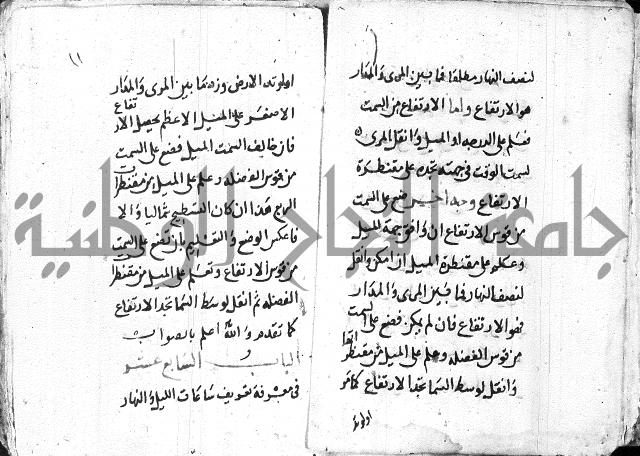 لنصف النهار مطلقا فما بين المرى والمدار
هو الارتفاع واما الارتفاع من السمت
فعلم على الدرجه او الميل وانقل المرى
لسمت الوقت في جهته تجده على مقنطرة
الارتفاع وجه اخر ضع على السمت
من قوس الارتفاع ان وافق جهة الميل
وعلم على مقنطرة الميل ان امكن وانقل
لنصف النهار فما بين المرى والمدار
فهو الارتفاع فان لم يمكن فضع على السمت
من قوس الفضله وعلم على الميل من مقنطراتها
وانقل لوسط السما تجد الارتفاع كما مر
اولوتد
١١
اولوتد الارض وزد ما بين المرى والمدار
الاصغر على الميل الاعظم يحصل الارتفاع
فان خالف السمت الميل فضع على السمت
من قوس الفضله وعلم على الميل من مقنطرات
هذا ان كان التسطيح شماليا والا
فاعكس الوضع والتعليم بان تضع على السمت
من قوس الارتفاع وتعلم على الميل من مقنطرات
الفضله ثم انقل لوسط السما تجد الارتفاع
كما تقدم والله اعلم بالصواب
الباب السابع عشر
في معرفة تقويف ساعات الليل والنهار
جامعة النجاح الوطنية